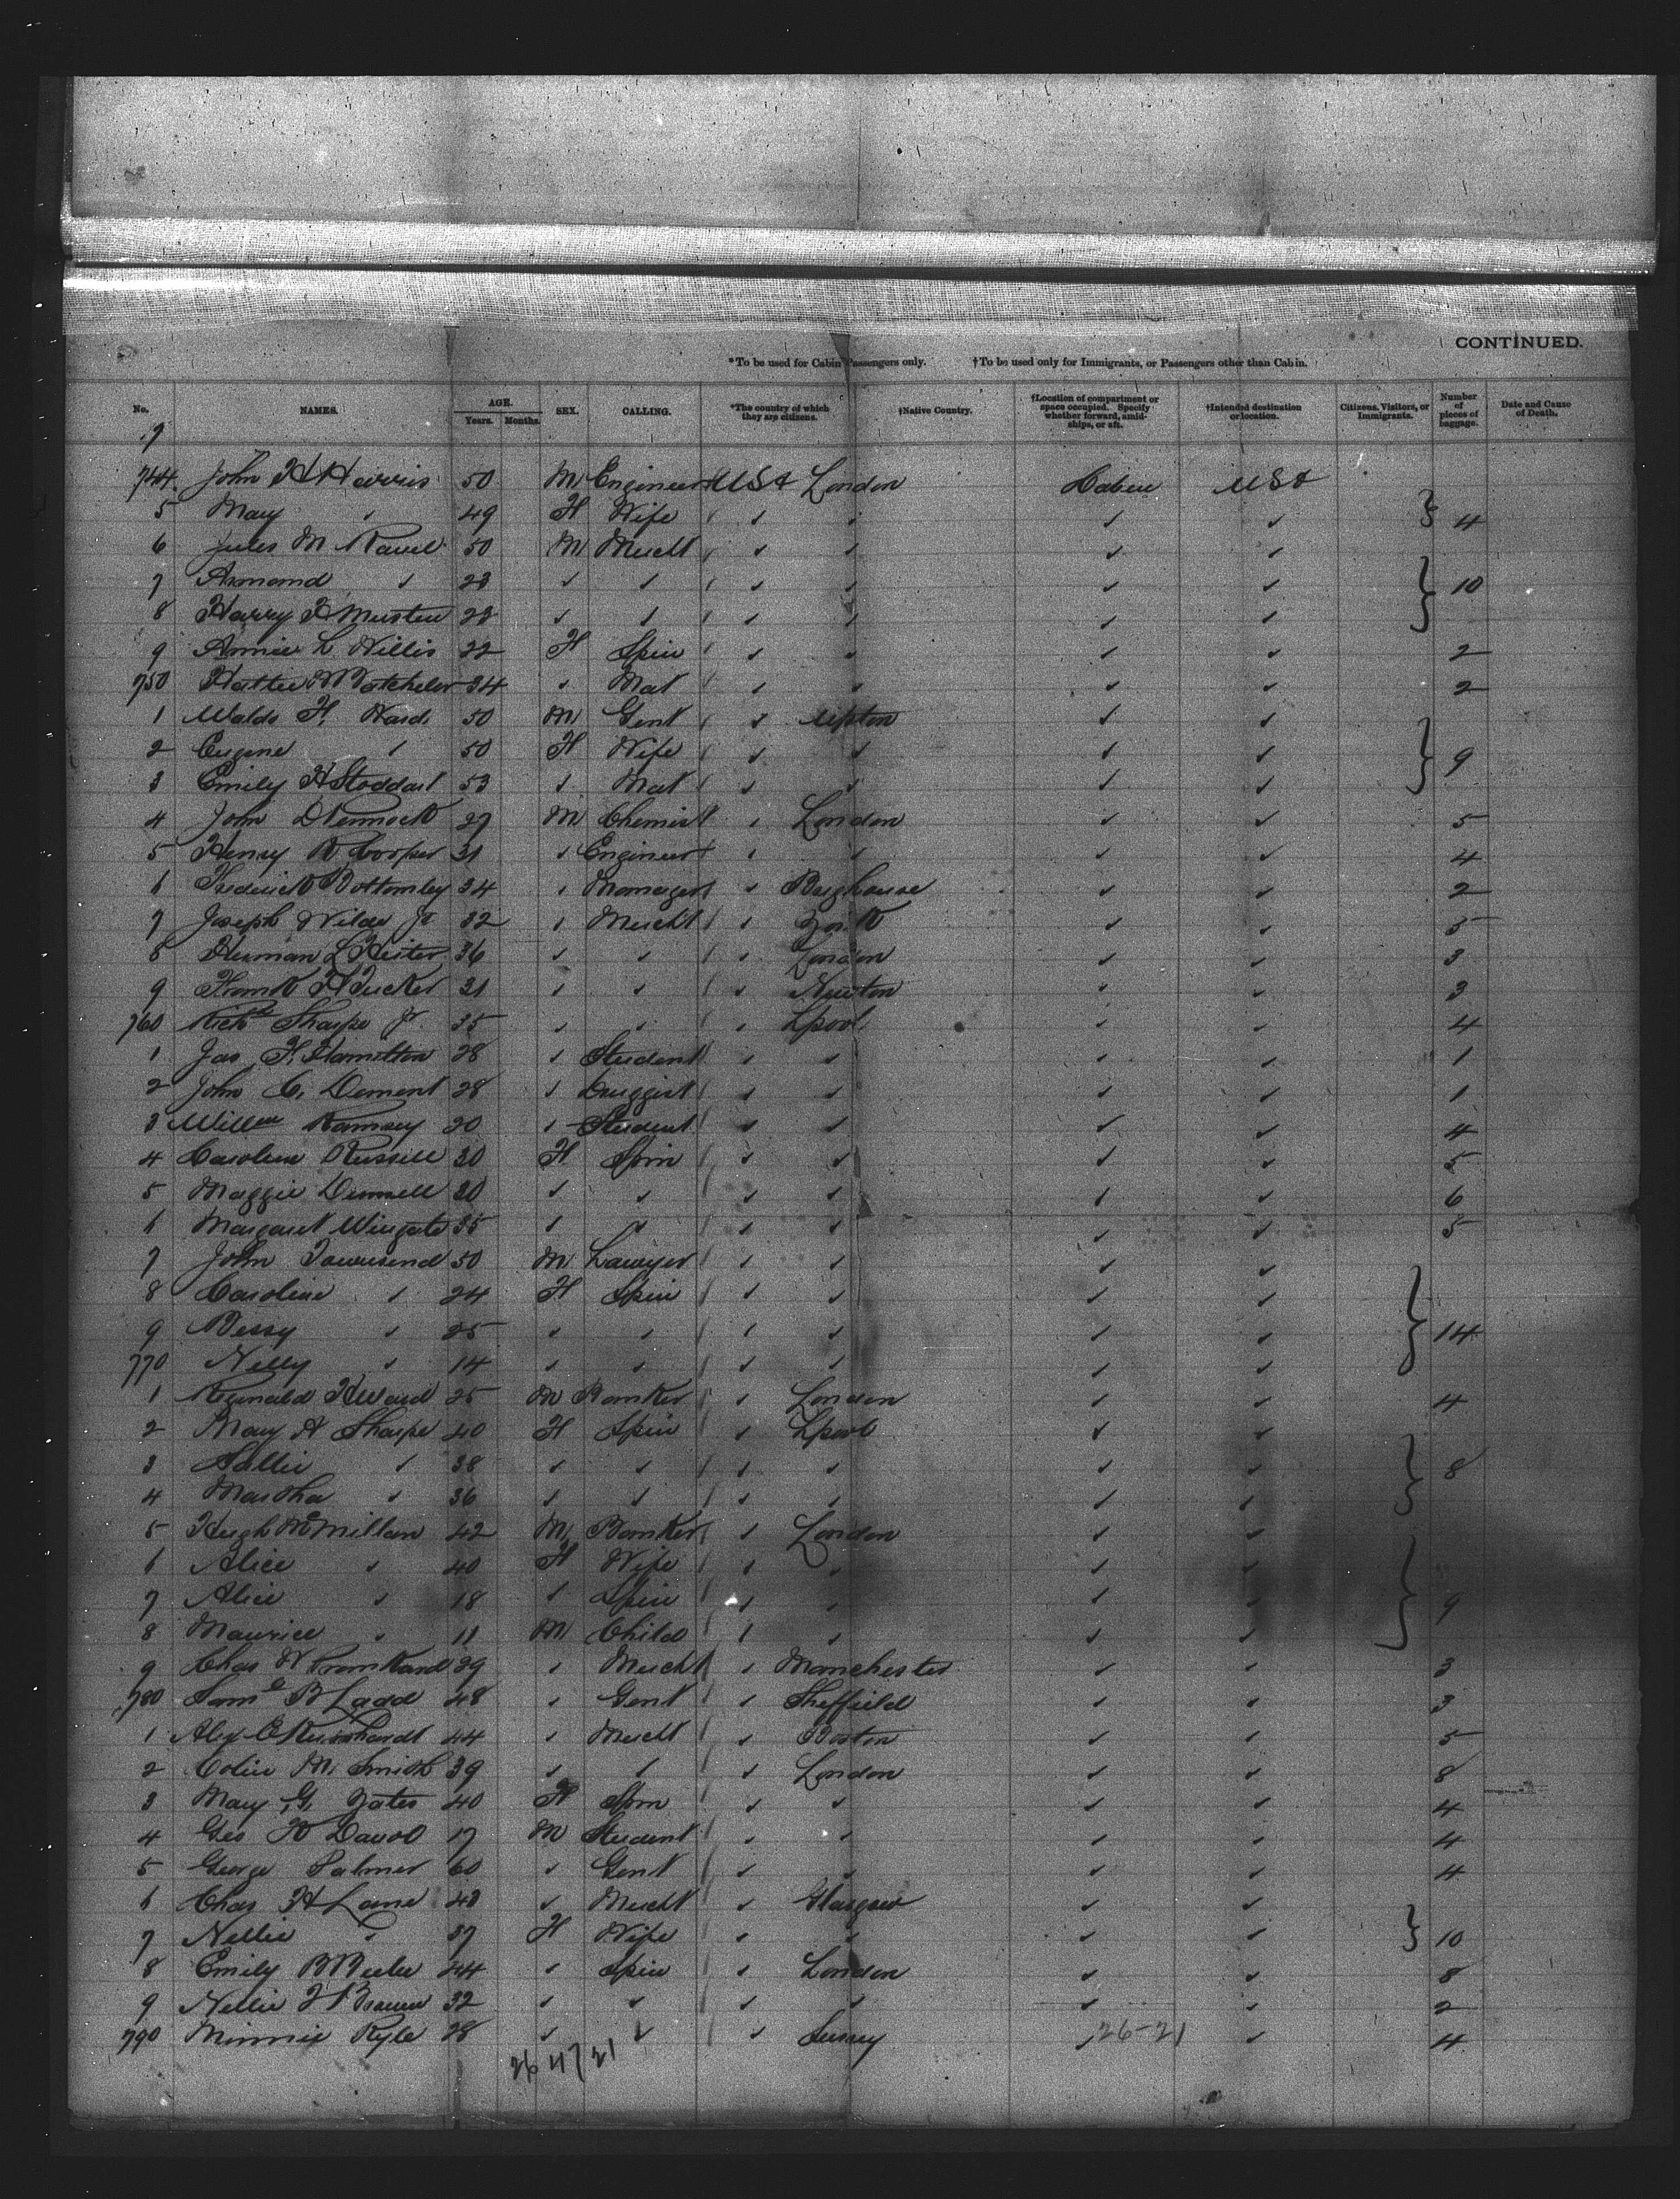 CONTINUED.
*To be used for Cabin Passengers only. †To be used only for Immigrants, or Passengers other than Cabin.
No. NAMES. AGE. Years. Months. SEX. CALLING. *The country of which they are citizens. †Native Country. †Location of compartment or space occupied. Specify whether forward, amidships, or aft. †Intended destination or location. Citizens, Visitors, or Immigrants. Number of pieces of baggage. Date and Cause of Death.
744 John H Harris 50 M Engineer USA London Cabin USA
5 Mary ✓ 49 F Wife ✓ ✓ ✓ ✓ 4
6 Jules M 50 M Mercht ✓ ✓ ✓ ✓
7 Armand ✓ 23 ✓ ✓ ✓ ✓ ✓ ✓ 10
8 Harry F 23 ✓ ✓ ✓ ✓ ✓ ✓
9 Annie L Willis 22 F Spin ✓ ✓ ✓ ✓ 2
750 Hattie M Batchelor 34 ✓ Mat ✓ ✓ ✓ ✓ 2
1 Waldo F. Ward 50 M Gent ✓ Upton ✓ ✓
2 Eugene ✓ 50 F Wife ✓ ✓ ✓ ✓ 9
3 Emily H Stoddart 53 ✓ Mat ✓ ✓ ✓ ✓
4 John 27 M Chemist ✓ London ✓ ✓ 5
5 Henry R Cooper 31 ✓ Engineer ✓ ✓ ✓ ✓ 4
6 Frederick Bottomley 34 ✓ Manager ✓ Brighouse ✓ ✓ 2
7 Joseph Wilde Jr 32 ✓ Mercht ✓ York ✓ ✓ 5
8 Herman L 36 ✓ ✓ ✓ London ✓ ✓ 3
9 Frank H Tucker 31 ✓ ✓ ✓ Newton ✓ ✓ 3
760 Richd Sharpe Jr. 35 ✓ ✓ ✓ Lpool ✓ ✓ 4
1 Jas F. Hamilton 28 ✓ Student ✓ ✓ ✓ ✓ 1
2 John C. Dement 28 ✓ Druggist ✓ ✓ ✓ ✓ 1
3 Willm Ramsey 20 ✓ Student ✓ ✓ ✓ ✓ 4
4 Caroline Russell 30 F Spin ✓ ✓ ✓ ✓ 5
5 Maggie 30 ✓ ✓ ✓ ✓ ✓ ✓ 6
6 Margaret Wingate 35 ✓ ✓ ✓ ✓ ✓ ✓ 5
7 John Townsend 50 M Lawyer ✓ ✓ ✓ ✓
8 Caroline ✓ 24 F Spin ✓ ✓ ✓ ✓
9 Bessy ✓ 25 ✓ ✓ ✓ ✓ ✓ ✓ 14
770 Nelly ✓ 14 ✓ ✓ ✓ ✓ ✓ ✓
1 Reginald H Ward 25 M Banker ✓ London ✓ ✓ 4
2 Mary A Sharpe 40 F Spin ✓ Lpool ✓ ✓
3 Sallie ✓ 38 ✓ ✓ ✓ ✓ ✓ ✓ 8
4 Martha ✓ 36 ✓ ✓ ✓ ✓ ✓ ✓
5 Hugh McMillan 42 M Banker ✓ London ✓ ✓
6 Alice ✓ 40 F Wife ✓ ✓ ✓ ✓
7 Alice ✓ 18 ✓ Spin ✓ ✓ ✓ ✓ 9
8 Maurice ✓ 11 M Child ✓ ✓ ✓ ✓
9 Chas W 39 ✓ Mercht ✓ Manchester ✓ ✓ 3
780 Saml B Ladd 48 ✓ Gent ✓ Sheffield ✓ ✓ 3
1 Alex C Reinhardt 44 ✓ Mercht ✓ Boston ✓ ✓ 5
2 Colin M. Smith 39 ✓ ✓ ✓ London ✓ ✓ 8
3 Mary G. Yates 40 F Spin ✓ ✓ ✓ ✓ 4
4 Geo W Davol 17 M Student ✓ ✓ ✓ ✓ 4
5 George Palmer 60 ✓ Gent ✓ ✓ ✓ ✓ 4
6 Chas H Lane 43 ✓ Mercht ✓ Glasgow ✓ ✓
7 Nellie ✓ 37 F Wife ✓ ✓ ✓ ✓ 10
8 Emily B 44 ✓ Spin ✓ London ✓ ✓ 8
9 Nellie F Brown 32 ✓ ✓ ✓ ✓ ✓ ✓ 2
790 Minnie Kyle 28 ✓ ✓ ✓ Surrey ✓ 26-21 ✓ 4
26 47 21